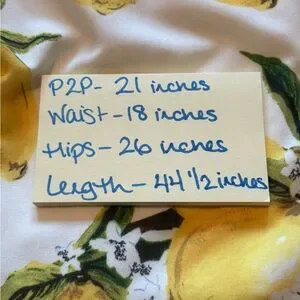 P2P- 21 inches
Waist-18 inches
Hips- 26 inches
Length- 44 1/2 inches